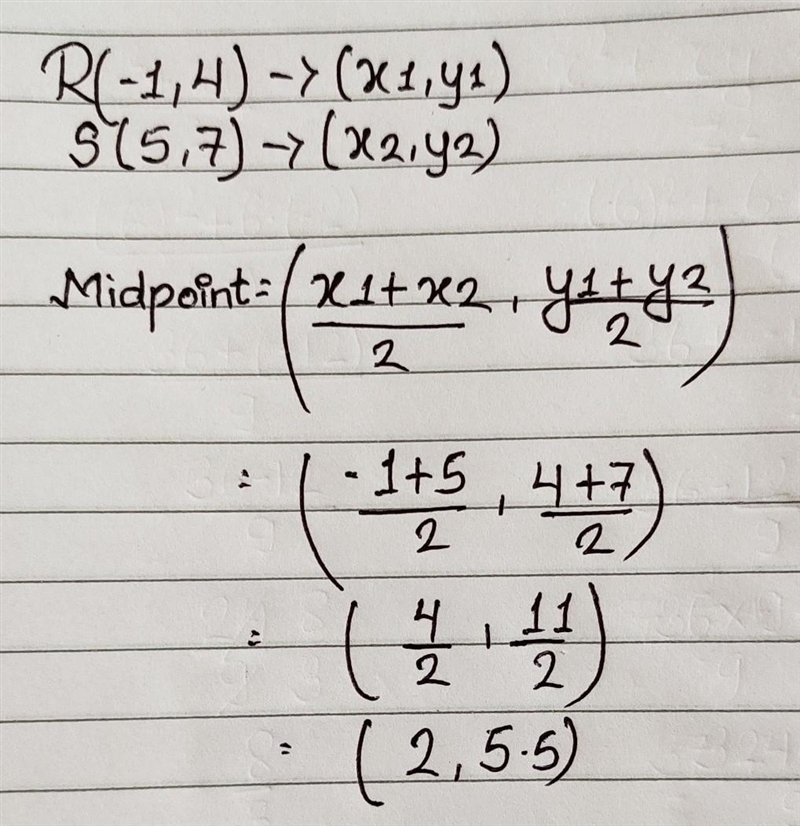 R(-1,4) -> (x1,y1)
S(5,7) -> (x2,y2)
Midpoint = (x1+x2/2 , y1+y2/2)
= (-1+5/2 , 4+7/2)
= (4/2 , 11/2)
= (2, 5.5)